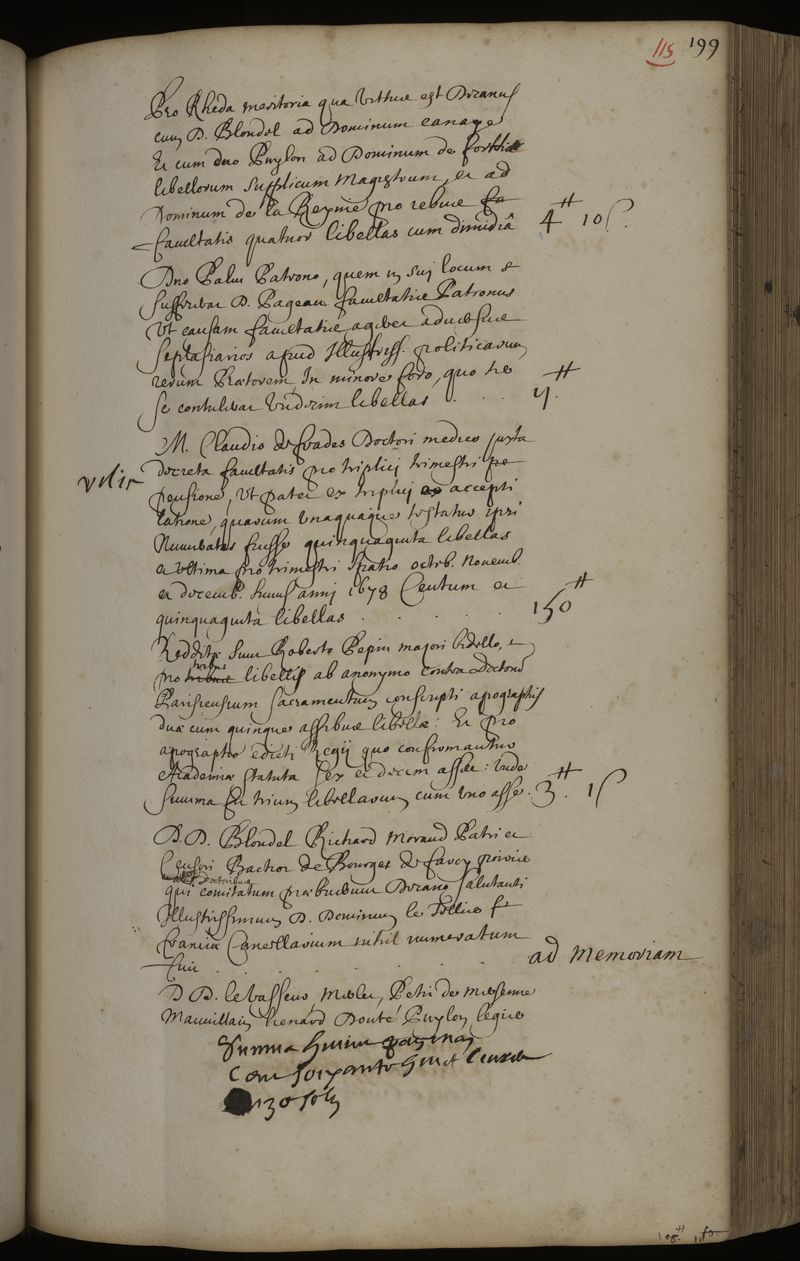 115 199
Pro Rheda meritoria qua usus est Decanus
cum D. Blondel ad Dominum
Et cum dno Puylon ad Dominum de
libellorum supplicum Magistrum, et ad
Dominum de la Reynie pro rebus fa
facultatis quatuor libellas cum dimidiâ 4 ₶ 10 s.
Dno Patrono, quem in sui locum
D. Pageau facultatis Patronus
Ut causam facultatis ageret adversus
Seplasiarios apud Illustriss. politicarum
rerum Praetorem, In minore foro, quo
se contulerat Undecim libellas . . . ₶
M. Claudio Doctori medico juxta
decreta facultatis pro triplici trimestri pe
pensione, ut patet ex triplici accepti
latione, quarum unaquaeque testatur ipsi
Numeratas fuisse quinquaginta libellas
et ultima pro trimestri spatio octob. Novemb.
et decemb. hujus anni 1678 Centum et
quinquaginta libellas . . . . . 150 ₶
Redditae sunt Roberto Pepin majori bidello,
tribus
pro libellis ab anonymo contra Doctorum
Parisiensium sacramentum conscripti apographis
duae cum quinque assibus libellae: Et pro
apographo edicti Regii quo confirmantur
Academiae statuta sex et decim asses: Unde
summa fit trium libellarum cum uno asse. 3 ₶. 1 s
D. D. Blondel Richard Morand Patri et
Censori Bachot de Bourges de Farcy
doctoribus
qui comitatum praebuerunt Decano salutanti
Illustrissimum D. Dominum le Tellier
Franciae Cancellarium nihil numeratum
fuit . . . . . . ad Memoriam
D D. le Vasseur, Petit de
Mauvillain Renard Douté Puylon
Summa hujus paginae
Cent soixante huit livres